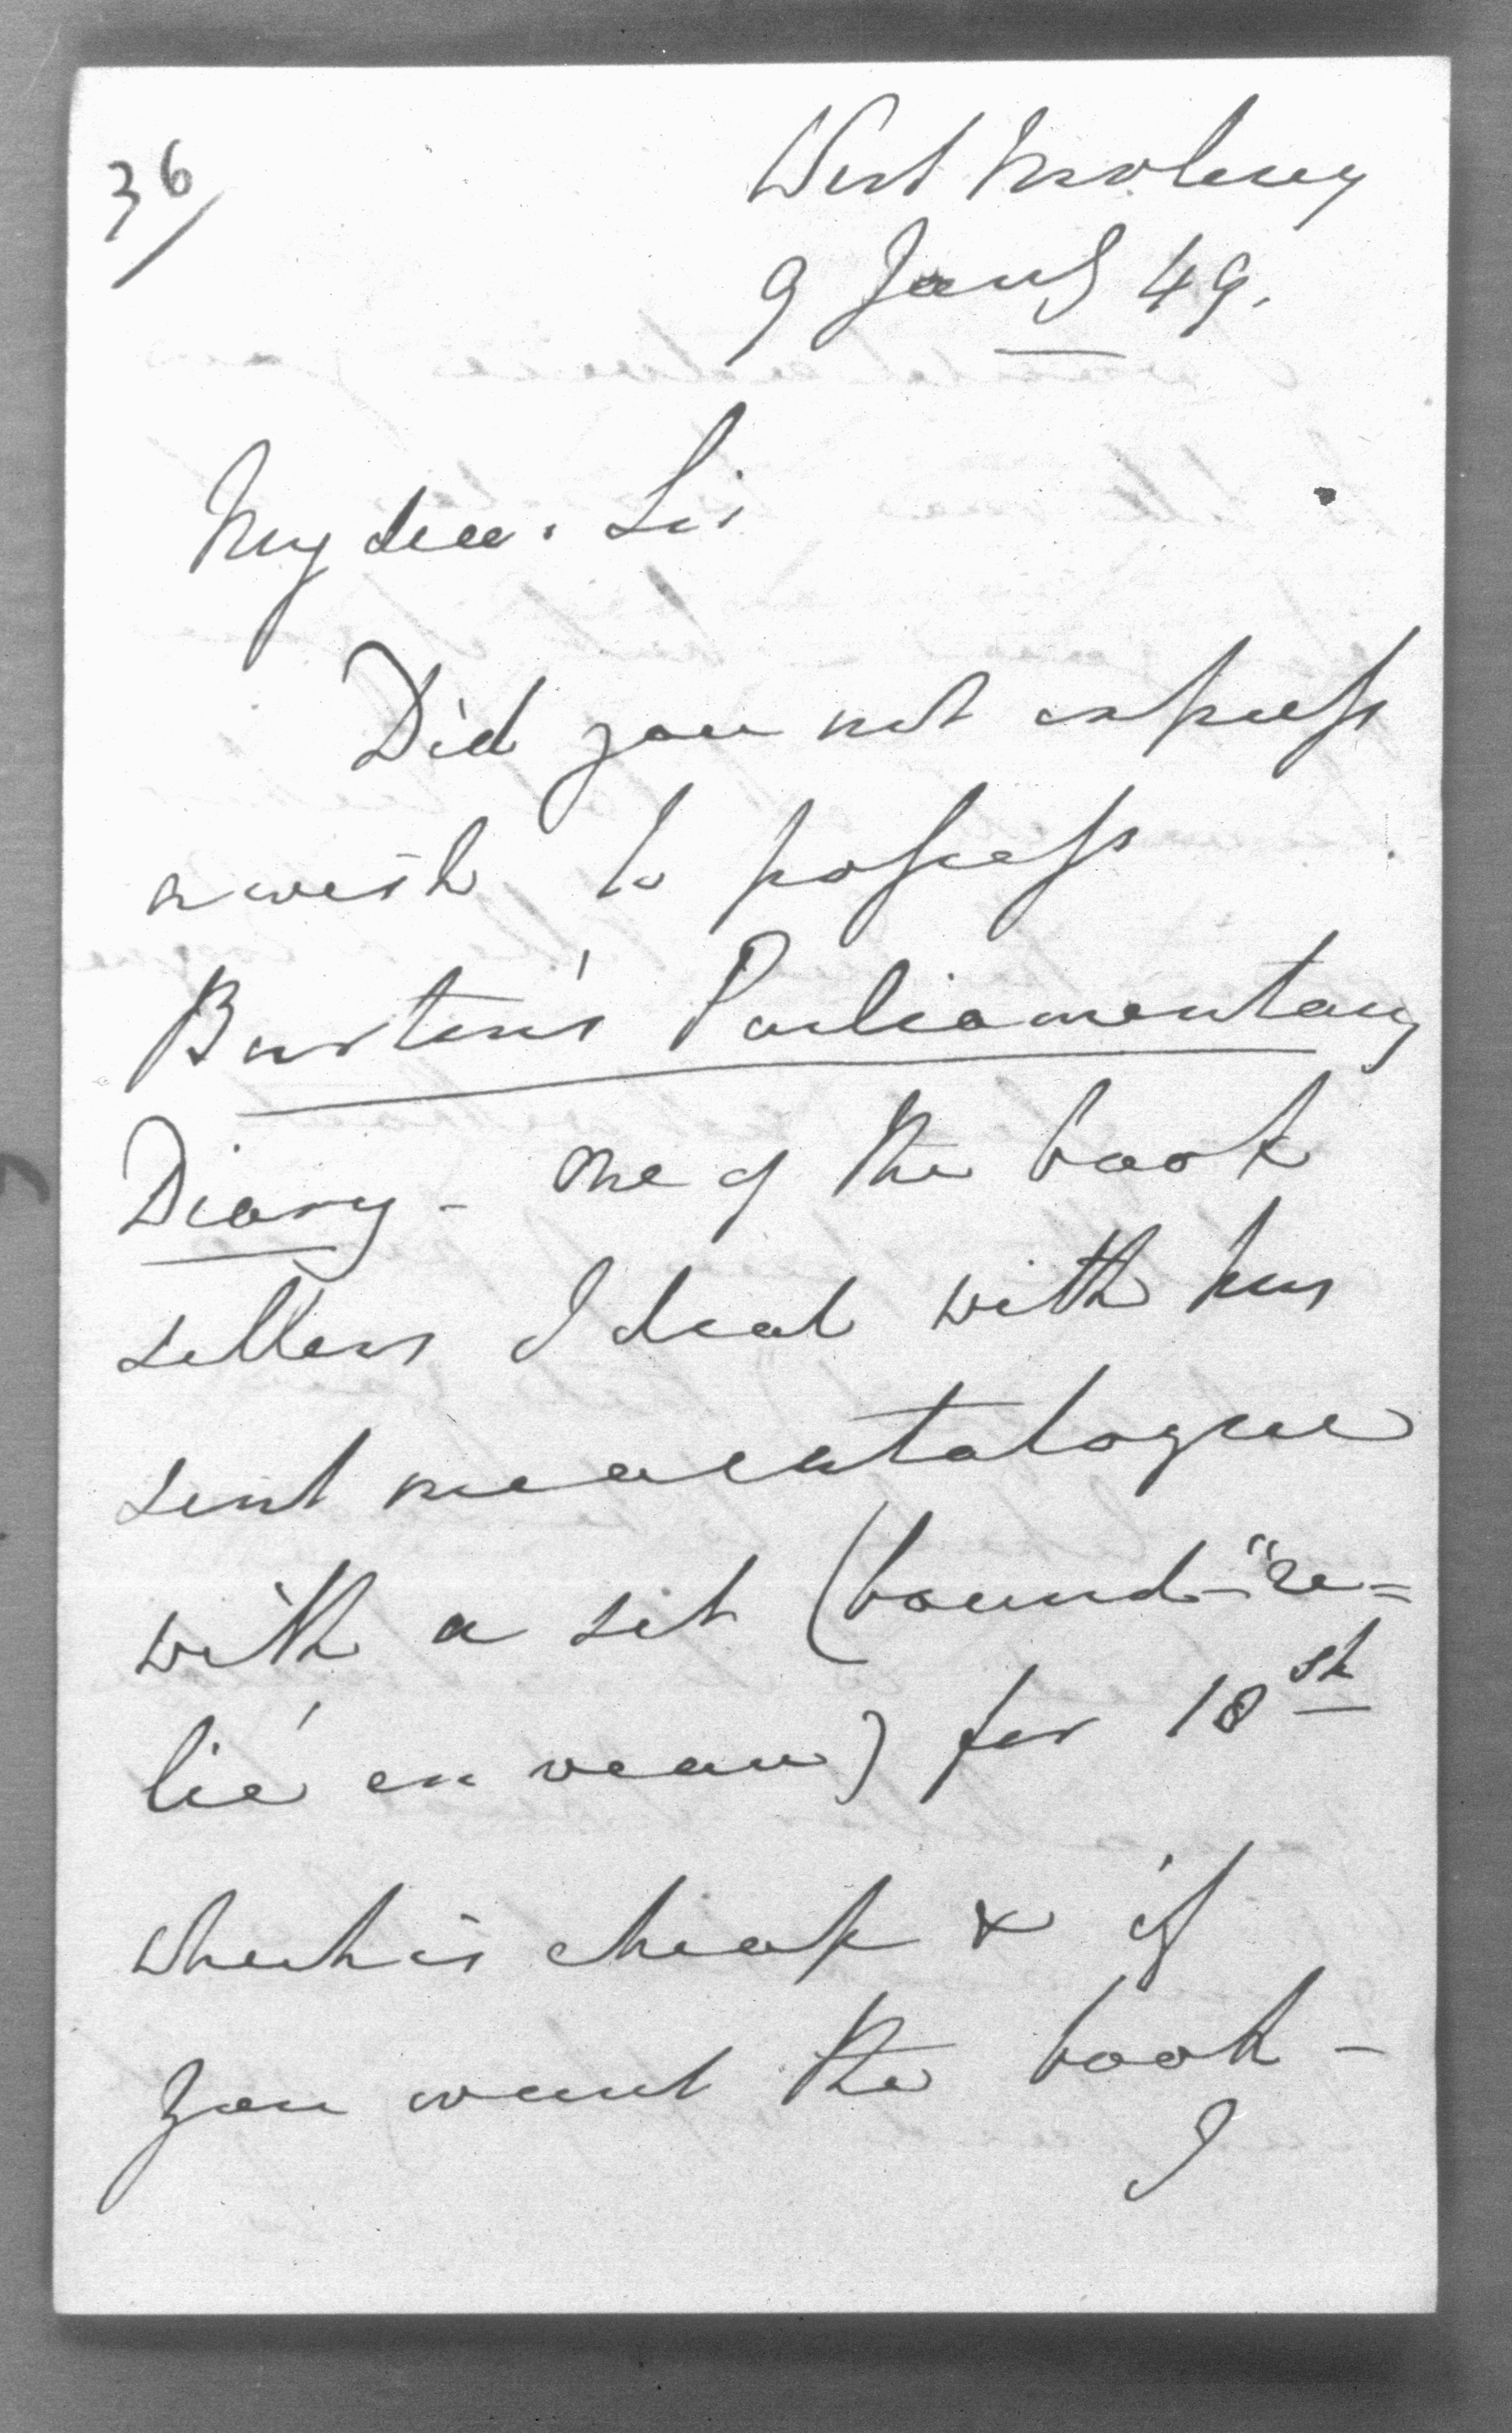 36/
West Molesey
9 Jany 49.
My dear Sir
Did you not express
a wish to possess
Burton's Parliamentary
Diary - one of the book
sellers I deal with has
sent me a catalogue
with a set (bound - "re=
lié en veau) for 18sh
which is cheap & if
you want the book -
I